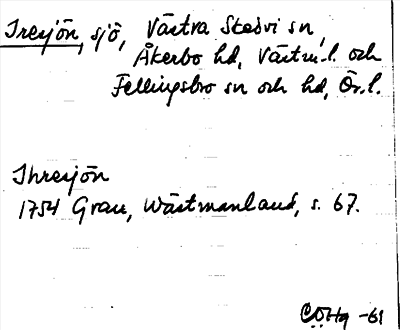 Iresjön, sjö, Västra Skedvi sn,
Åkerbo hd, Västm.l. och
Fellingsbro sn och hd, Ör.l.
Ihresjön
1754 Grau, Wästmanland, s. 67.
CÖHg -61